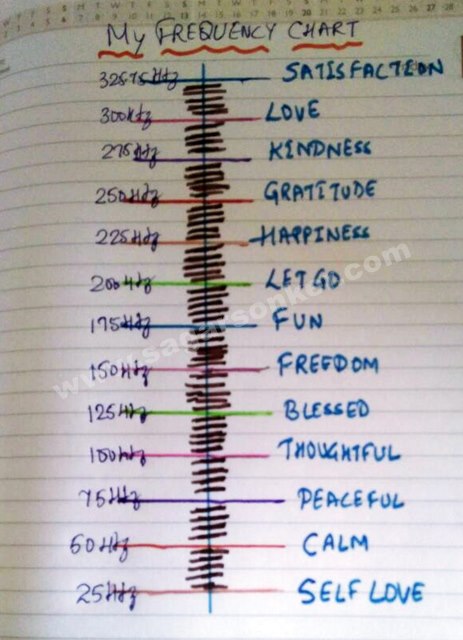 My FREQUENCY CHART
SATISFACTION
300Hz LOVE
275Hz KINDNESS
250Hz GRATITUDE
225Hz HAPPINESS
200Hz LET GO
175Hz FUN
150Hz FREEDOM
125Hz BLESSED
100Hz THOUGHTFUL
75Hz PEACEFUL
50Hz CALM
25Hz SELF LOVE